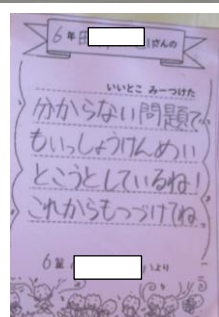 6年
さんの
いいとこ みーつけた
分からない問題で
もいっしょうけんめい
とこうとしているね!
これからもつづけてね
6年 より